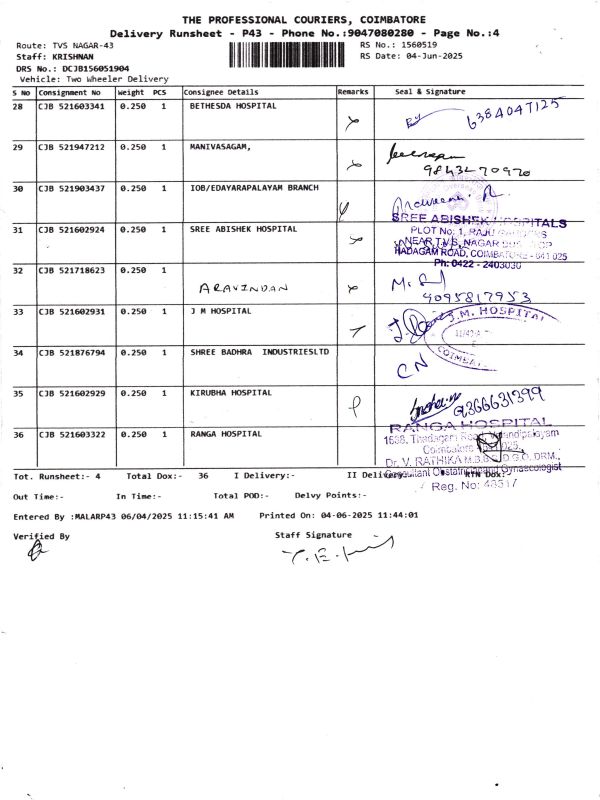 THE PROFESSIONAL COURIERS, COIMBATORE
Delivery Runsheet - P43 - Phone No.:9047080280 - Page No.:4
Route: TVS NAGAR-43 RS No.: 1560519
Staff: KRISHNAN RS Date: 04-Jun-2025
DRS No.: DCJB156051904
Vehicle: Two Wheeler Delivery
S No Consignment No Weight PCS Consignee Details Remarks Seal & Signature
28 CJB 521603341 0.250 1 BETHESDA HOSPITAL 6384047125
29 CJB 521947212 0.250 1 MANIVASAGAM,
9843470970
30 CJB 521903437 0.250 1 IOB/EDAYARAPALAYAM BRANCH
SREE ABISHEK HOSPITALS
31 CJB 521602924 0.250 1 SREE ABISHEK HOSPITAL PLOT No: 1, RAJU
NEAR T.V.S. NAGAR
HADAGAM ROAD, COIMBATORE - 641 025
Ph: 0422 - 2403030
32 CJB 521718623 0.250 1
ARAVINDAN
9095817953
33 CJB 521602931 0.250 1 J M HOSPITAL J.M. HOSPITAL
34 CJB 521876794 0.250 1 SHREE BADHRA INDUSTRIESLTD CN
35 CJB 521602929 0.250 1 KIRUBHA HOSPITAL 9366631399
RANGA HOSPITAL
36 CJB 521603322 0.250 1 RANGA HOSPITAL
Dr. V. RATHIKA M.B.B.S, D.G.O, DRM.,
Tot. Runsheet:- 4 Total Dox:- 36 I Delivery:- II Delivery:- RTN Dox:-
Consultant Obstetrician and Gynaecologist
Reg. No: 48317
Out Time:- In Time:- Total POD:- Delvy Points:-
Entered By :MALARP43 06/04/2025 11:15:41 AM Printed On: 04-06-2025 11:44:01
Verified By Staff Signature